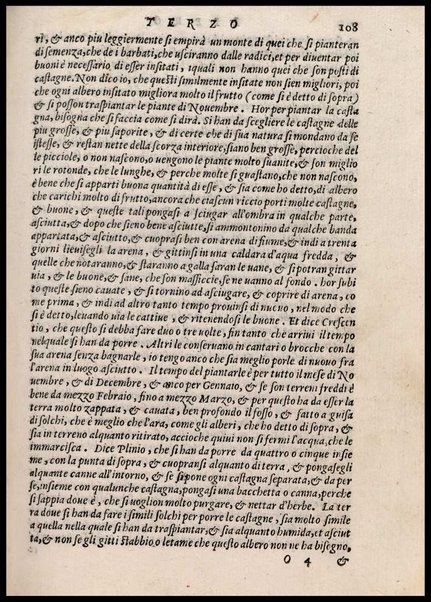 TERZO 108
ri, & anco piu leggiermente si empirà un monte di quei che si pianteran
di semenza, che de i barbati, che usciranno dalle radici, et per diuentar poi
buoni è necessario, di esser insitati, iquali non hanno quei che son posti di
castagne. Non dico io, che questi similmente insitate non sien migliori, poi
che ogni albero insitato migliora molto il frutto (come si è detto di sopra)
& si posson traspiantar le piante di Nouembre. Hor per piantar la casta
gna, bisogna che si faccia come si dirà. Si han da scegliere le castagne delle
piu grosse, & piu saporite, & di certe che di sua natura si mondano da se
istesse, & restan nette della scorza interiore, sian ben grosse, percioche del
le picciole, o non nascono, o uengono le piante molto suanite, & son miglio
ri le rotonde, che le lunghe, & perche molte si guastano, che non nascono
è bene che si apparti buona quantità di esse, & sia come ho detto, di albero
che carichi molto di frutto, ancora che ciascun riccio porti molte castagne,
& buone, & queste tali pongasi a sciugar all'ombra in qualche parte,
asciutta, & dopo che sieno bene asciutte, si ammontonino da qualche banda
appartata, & asciutto, & cuoprasi ben con arena di fiume, & indi a trenta
giorni lieuisegli la arena, & gittinsi in una caldara d'aqua fredda, &
quelle che notaranno, & staranno a galla saran le uane, & si potran gittar
uia, & le buone, & sane, che son massiccie, se ne uanno al fondo. hor subi
to queste sieno cauate, & si tornino ad asciugare, & coprire di arena, co
me prima, & indi ad altro tanto tempo prouinsi di nuouo, nel modo che
si è detto, leuando uia le cattiue, & ritenendosi le buone. Et dice Crescen
tio, che questo si debba fare duo o tre uolte, fin tanto che arriui il tempo
nelquale si han da porre. Altri le conseruano in cantari o brocche con la
sua arena senza bagnarle, io tengo anco che sia meglio porle di nuouo fra
l'arena in luogo asciutto. Il tempo del piantarle è per tutto il mese di No
uembre, & di Decembre, & anco per Gennaio, & se son terreni freddi è
bene da mezzo Febraio, fino a mezzo Marzo, & per questo ha da esser la
terra molto zappata, & cauata, ben profondo il fosso, & fatto a guisa
di solchi, che è meglio che l'ara, come gli alberi, che ho detto di sopra, &
sia in terreno alquanto ritirato, accioche quiui non si fermi l'acqua, che le
immarcisca. Dice Plinio, che si han da porre da quattro o cinque insie
me, con la punta di sopra, & cuopransi alquanto di terra, & pongasegli
alquante canne all'intorno, & se si pone ogni castagna separata, & da per
se, insieme con qualunque castagna, pongasi una bacchetta o canna, perche
si sappia doue è, che si uoglion molto purgare, & nettar d'herbe. La ter
ra doue si han da fare i simili solchi per porre le castagne, sia molto simile
a quella nella quale si han da traspiantar, & sia alquanto humida, et asciut
ta, & non se gli gitti stabbio, o letame che questo albero non ne ha bisogno,
O 4 &